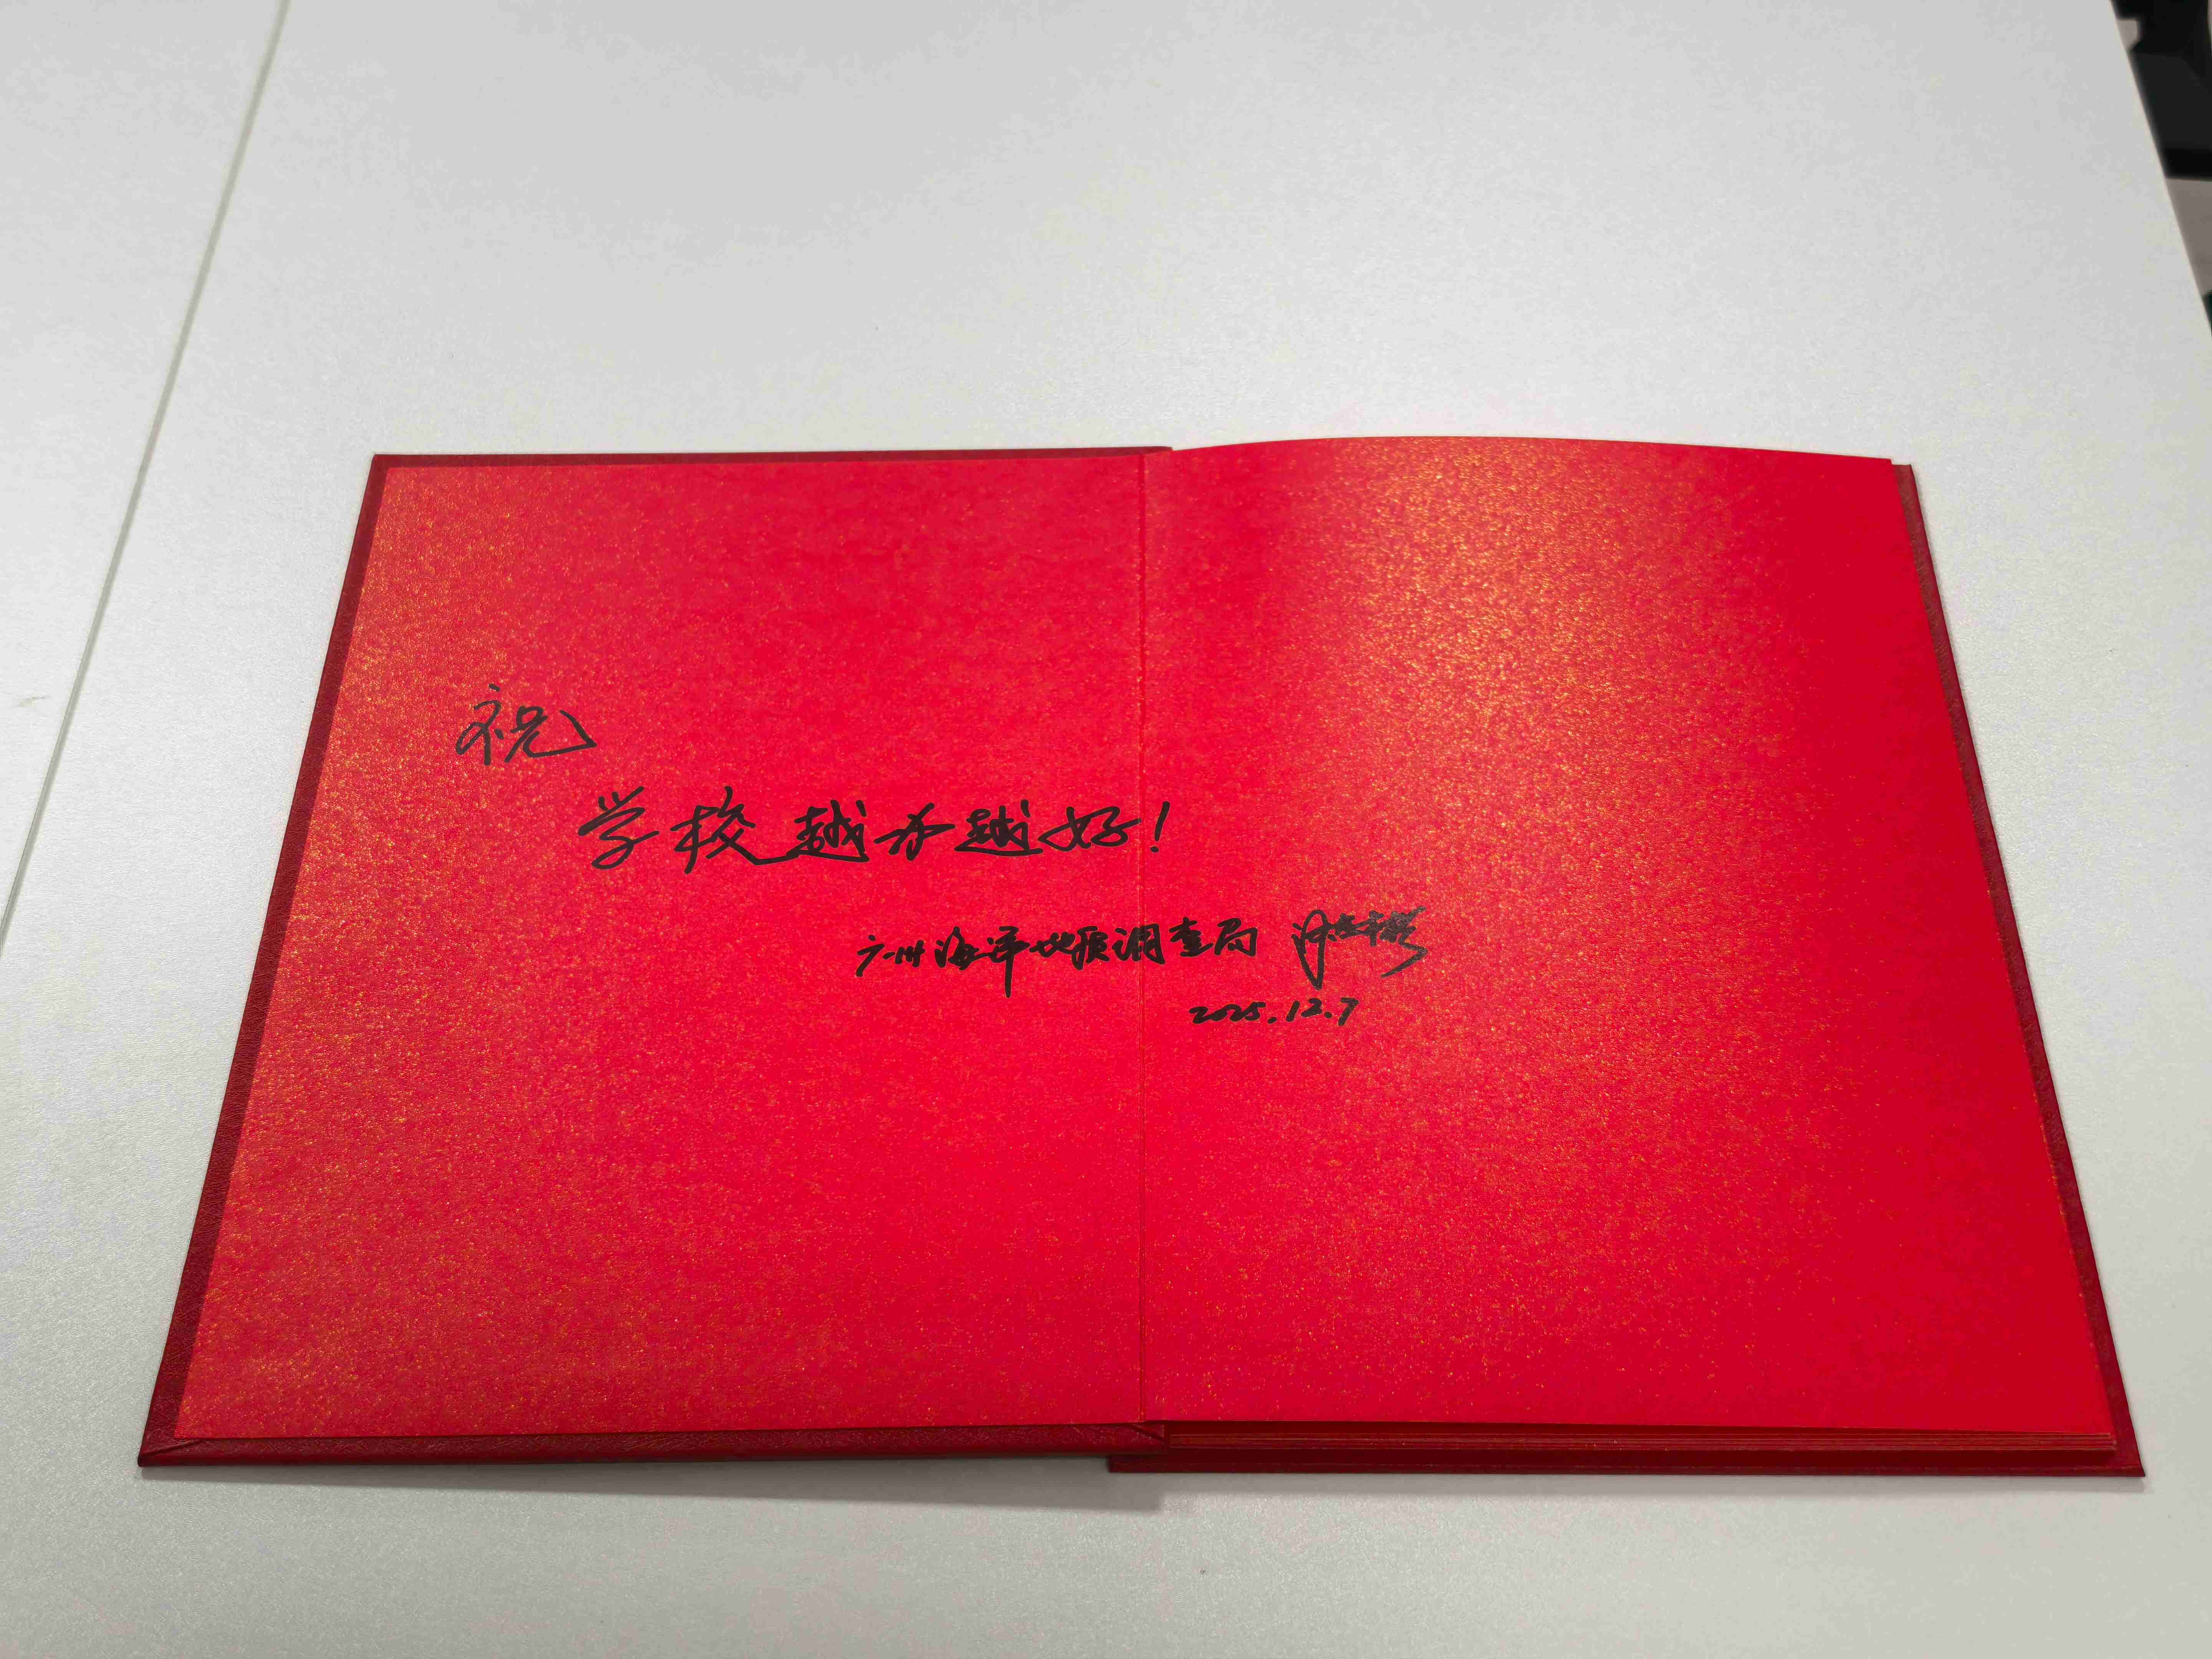 祝
学校越办越好！
广州海洋地质调查局
2025.12.7